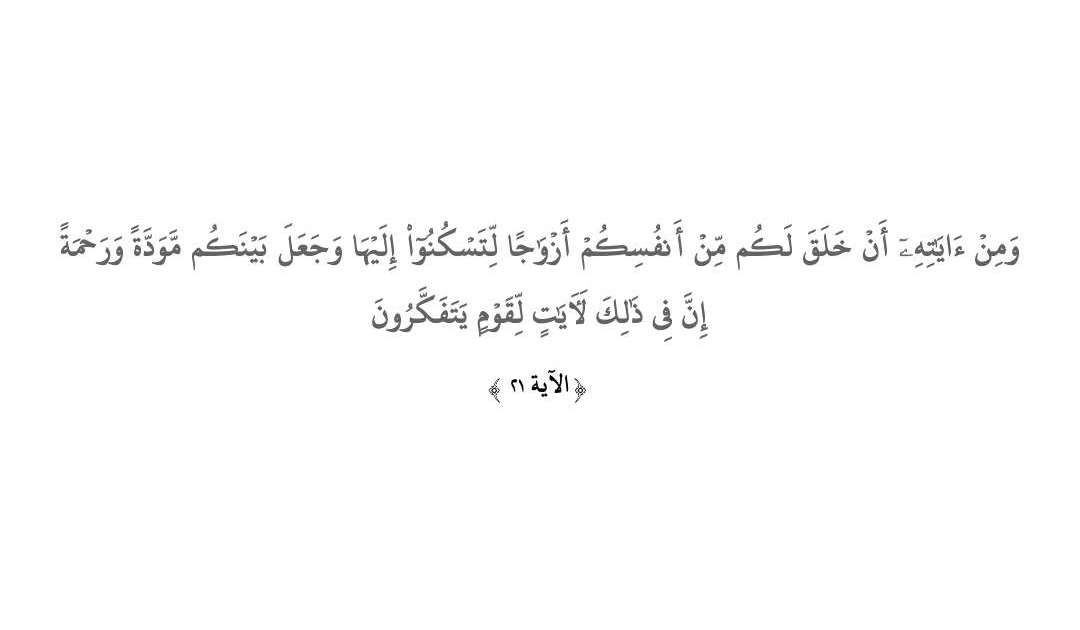 وَمِنۡ ءَايَٰتِهِۦٓ أَنۡ خَلَقَ لَكُم مِّنۡ أَنفُسِكُمۡ أَزۡوَٰجٗا لِّتَسۡكُنُوٓاْ إِلَيۡهَا وَجَعَلَ بَيۡنَكُم مَّوَدَّةٗ وَرَحۡمَةً
إِنَّ فِي ذَٰلِكَ لَأٓيَٰتٖ لِّقَوۡمٖ يَتَفَكَّرُونَ
﴿الآية ٢١ ﴾